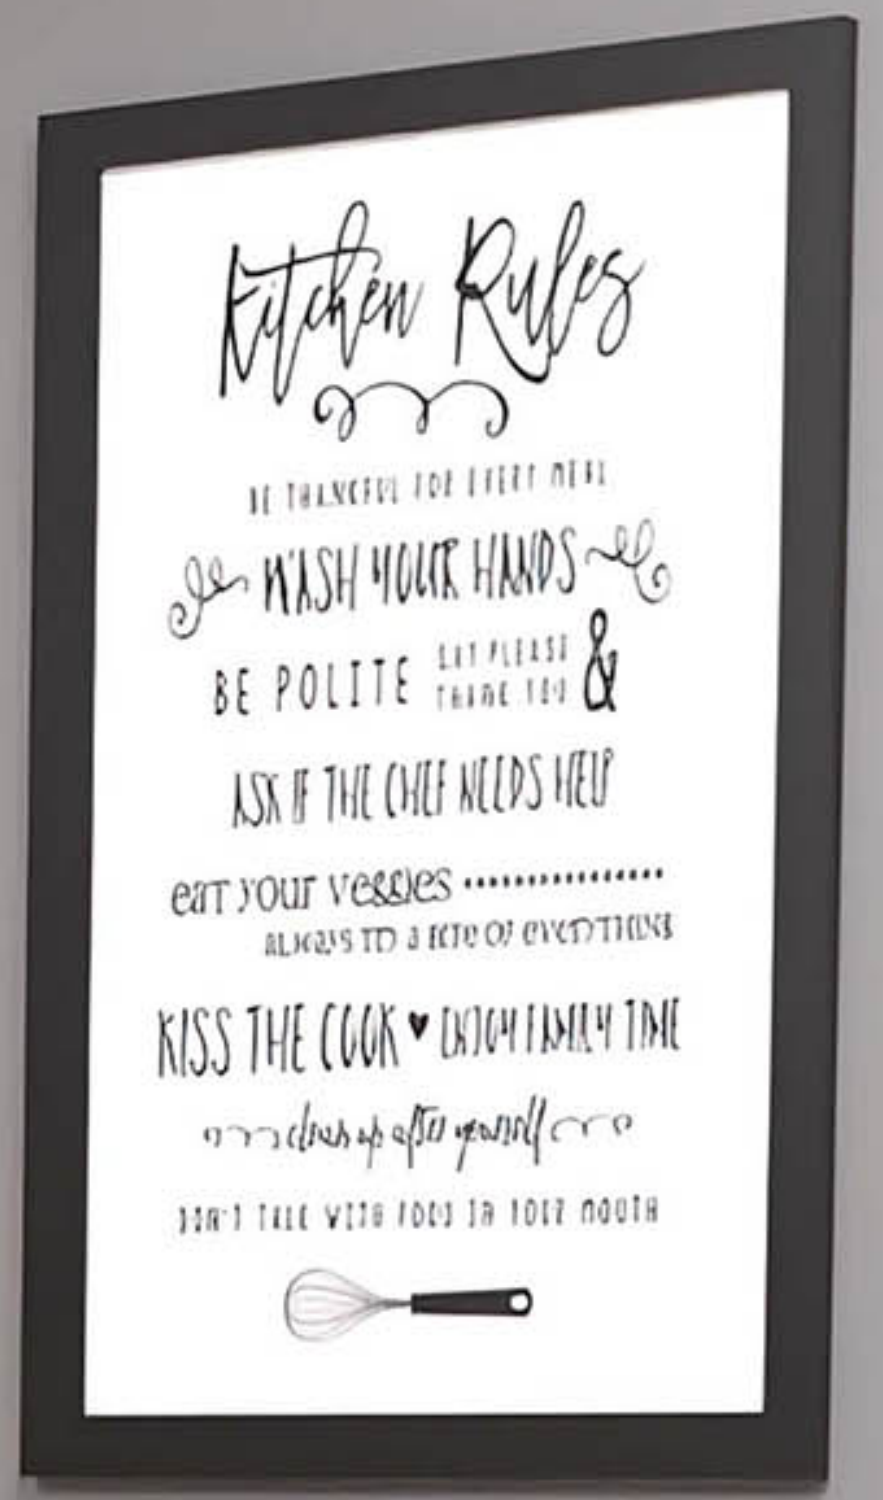 Kitchen Rules
BE THANKFUL FOR EVERY MEAL
WASH YOUR HANDS
BE POLITE SAY PLEASE & THANK YOU
ASK IF THE CHEF NEEDS HELP
eat your veggies
ALWAYS TO A OF EVERYTHING
KISS THE COOK ♥ ENJOY FAMILY TIME
clean up after yourself
DON'T TALK WITH FOOD IN YOUR MOUTH